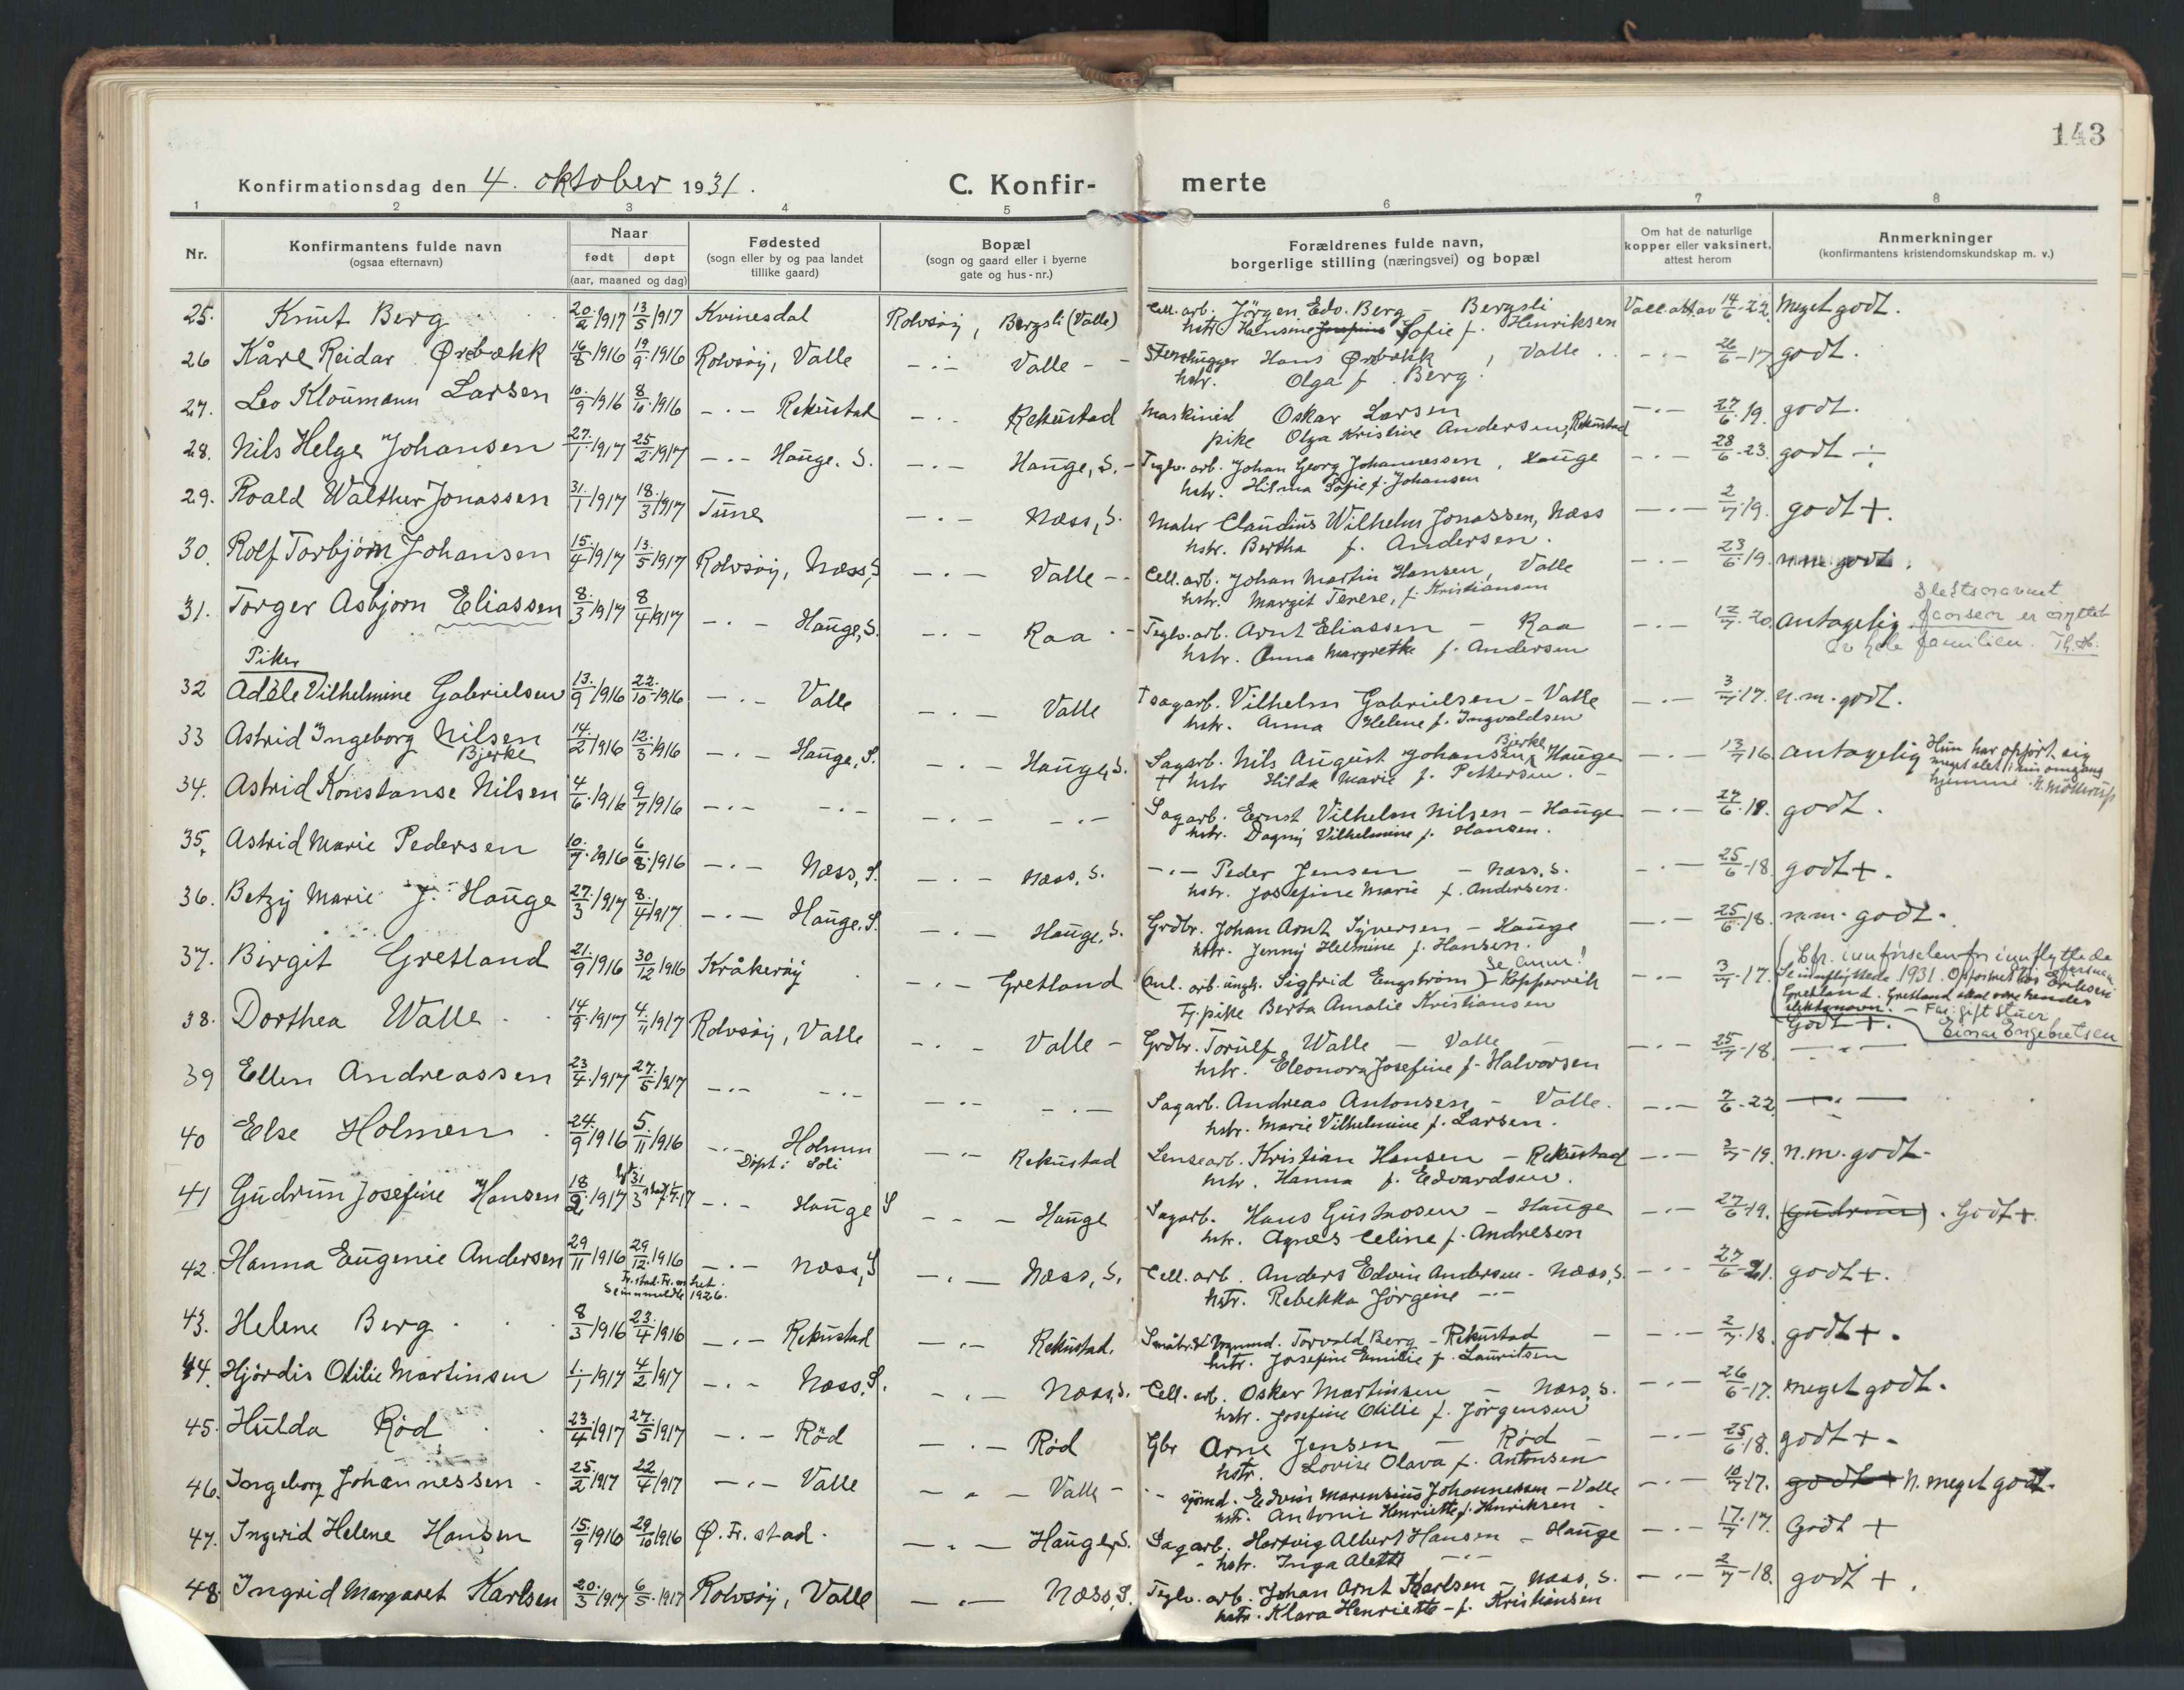 143
Konfirmationsdag den 4. oktober 1931.
C. Konfir- merte
1 2 3 4 5 6 7 8
Nr.
Konfirmantens fulde navn
(ogsaa efternavn)
Naar
født døpt
(aar, maaned og dag)
Fødested
(sogn eller by og paa landet
tillike gaard)
Bopæl
(sogn og gaard eller i byerne
gate og hus-nr.)
Forældrenes fulde navn,
borgerlige stilling (næringsvei) og bopæl
Om hat de naturlige
kopper eller vaksinert,
attest herom
Anmerkninger
(konfirmantens kristendomskundskap m. v.)
25. Knut Berg 20/2 1917 13/5 1917 Kvinesdal Rolvsøy, Bergsli (Valle) Cell. arb. Jörgen Edv. Berg - Bergsli Vacc. att av 14/6-22. Meget godt.
hstr. Hansine Josefine Sofie f. Henriksen
26 Kåre Reidar Ørebækk 16/8 1916 19/9 1916 Rolvsøy, Valle -.- Valle - Stenhugger Hans Ørebækk, Valle. -.- 26/6-17 godt.
hstr. Olga f. Berg.
27. Leo Kloumann Larsen 10/9 1916 8/10 1916 -.- Rekustad -.- Rekustad Maskinist Oskar Larsen -.- 27/6 19. godt.
pike Olga Kristine Andersen, Rekustad
28. Nils Helge Johansen 27/1 1917 25/2 1917 -.- Hauge. S. -.- Hauge, S. - Teglv. arb. Johan Georg Johannessen, Hauge -.- 28/6-23. godt ÷
hstr. Hilma Sofie f. Johansen
29. Roald Walther Jonassen 31/1 1917 18/3 1917 Tune -.- Næss, S. Maler Claudius Wilhelm Jonassen, Næss -.- 2/7 19. godt +.
hstr. Bertha f. Andersen.
30. Rolf Torbjørn Johansen 15/4 1917 13/5 1917 Rolvsøy, Næss, S -.- Valle -- Cell. arb. Johan Martin Hansen, Valle -.- 23/6 19. n.m. godt.
hstr. Margit Terese, f. Kristiansen
31. Torger Asbjørn Eliassen 8/3 1917 8/4 1917 -.- Hauge, S. -.- Raa - Teglv. arb. Arnt Eliassen - Raa -.- 12/7 20. antagelig.
hstr. Anna Margrethe f. Andersen
Slektsnavnet
er
av hele familien. Th. H.
Piker
32 Adèle Vilhelmine Gabrielsen 13/9 1916 22/10 1916 -.- Valle -.- Valle Sagarb. Vilhelm Gabrielsen - Valle -.- 3/7 17. n.m. godt.
hstr. Anna Helene f. Ingvaldsen
33 Astrid Ingeborg Nilsen 14/2 1916 12/3 1916 -.- Hauge, S. -.- Hauge, S. Sagarb. Nils August Johansen Bjerke, Hauge -.- 13/7 16. antagelig Hun har opført sig
Bjerke
† hstr Hilda Marie f. Pettersen. -
meget slet i sin omgang
hjemme.
34. Astrid Konstanse Nilsen 4/6 1916 9/7 1916 -.- -.- -.- -.- Sagarb. Ernst Vilhelm Nilsen - Hauge -.- 27/6 18. godt.
hstr. Dagny Vilhelmine f. Hansen.
35. Astrid Marie Pedersen 10/7 1916 6/8 1916 -.- Næss, S. -.- Næss, S. -.- Peder Jensen - Næss, S. -.- 25/6-18. godt +.
hstr. Josefine Marie f. Andersen.
36. Betzy Marie J. Hauge 27/3 1917 8/4 1917 -.- Hauge. S. -.- Hauge, S. Grdbr. Johan Arnt Syversen - Hauge -.- 25/6 18. n.m. godt.
hstr. Jenny Helmine f. Hansen.
37. Birgit Gretland 21/9 1916 30/12 1916 Kråkerøy - Gretland (Anl. arb. ungk. Sigfrid Engström) - Koppervik -.- 3/7-17.
Se Anm!
Tj. pike Berta Amalie Kristiansen
Cfr. innførselen for innflyttede
Se innflyttede 1931. Opfostret hos Eriksen
Gretland. Gretland skal være hendes
slektsnavn. - Far: gift
Godt +. Einar Engebretsen
38. Dorthea Walle 14/9 1917 4/11 1917 Rolvsøy, Valle -.- Valle - Grdbr. Torulf Walle - Valle -.- 25/7-18. -"-
hstr. Eleonora Josefine f. Halvorsen
39 Ellen Andreassen 23/4 1917 27/5 1917 -.- -.- -.- -.- Sagarb. Andreas Antonsen - Valle. -.- 7/6-22 -.-
hstr. Marie Vilhelmine f. Larsen.
40 Else Holmen 24/9 1916 5/11 1916 -.- Holmen -.- Rekustad Lensearb. Kristian Hansen - Rekustad -.- 2/7-19. n.m. godt.
Døpt i Soli
hstr. Hanna f. Edvardsen.
41 Gudrun Josefine Hansen 18/2 1917 31/3 -.- Hauge S - - - Hauge Sagarb. Hans Gustavsen - Hauge -.- 27/6-19. (Gudrun). Godt +.
hstr. Agnes Celine f. Andresen
42. Hanna Eugenie Andersen 29/11 1916 29/12 1916 -.- Næss, S -.- Næss, S. Cell. arb. Anders Edvin Andersen - Næss, S. -.- 27/6-21. godt +.
Se innmeldte 1926.
hstr. Rebekka Jørgine -.-
43. Helene Berg 8/3 1916 23/4 1916 -.- Rekustad -.- Rekustad. Torvald Berg - Rekustad -.- 2/7 18. godt +.
hstr. Josefine Emilie f. Lauritsen
44. Hjördis Otilie Martinsen 1/1 1917 4/2 1917 -.- Næss, S. -.- Næss, S. Cell. arb. Oskar Martinsen - Næss, S. -.- 26/6-17. meget godt.
hstr. Josefine Otilie f. Jörgensen
45. Hulda Rød 23/4 1917 27/5 1917 -.- Röd -.- Rød Gbr Arne Jensen - Rød - -.- 25/6 18. godt +.
hstr. Lovise Olava f. Antonsen
46. Ingeborg Johannessen 25/2 1917 22/4 1917 -.- Valle -.- Valle - sjömd. Edvin Marensius Johannessen - Valle -.- 10/7 17. godt + N. meget godt.
hstr. Antonie Henriette f. Henriksen
47. Ingerid Helene Hansen 15/9 1916 29/10 1916 Ø. Fr. stad. -.- Hauge, S. Sagarb. Hartvig Albert Hansen - Hauge -.- 17/7 17. Godt +
hstr. Inga Alette -.-
48. Ingrid Margaret Karlsen 20/3 1917 6/5 1917 Rolvsøy, Valle -.- Næss, S. Teglv. arb. Johan Arnt Karlsen - Næss, S. -.- 2/7-18. godt +.
hstr. Klara Henriette - f. Kristiansen